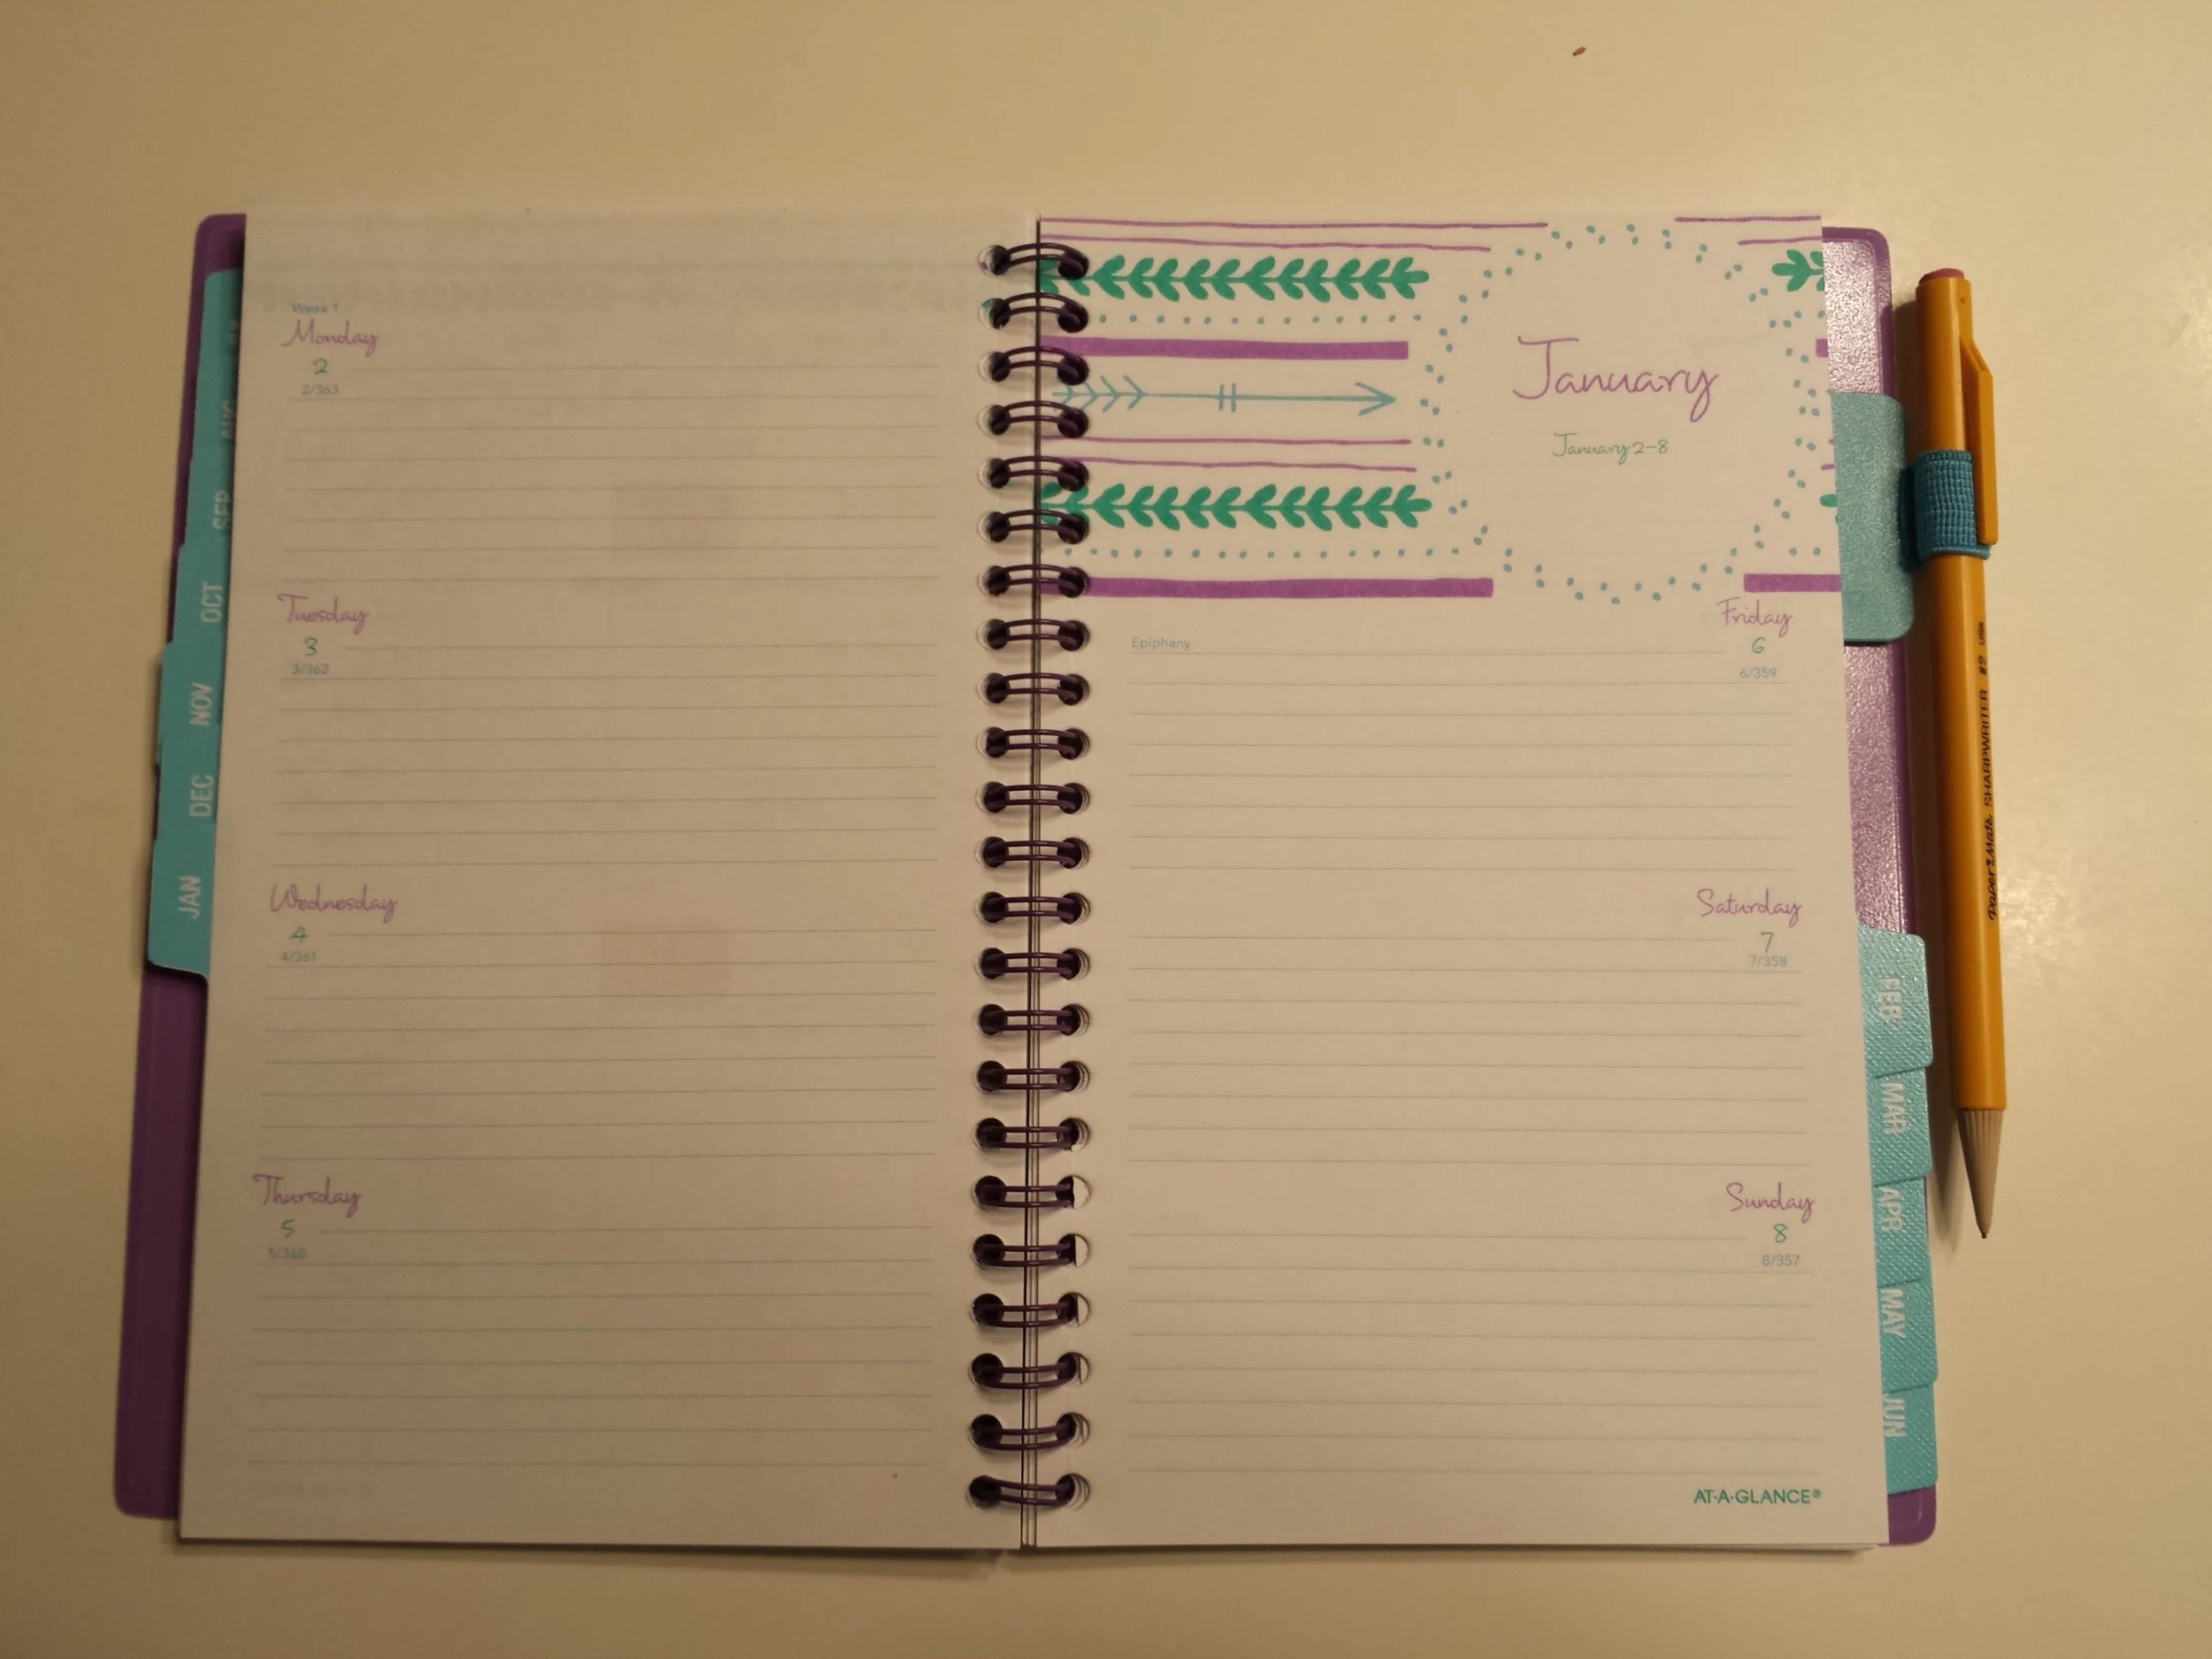 Week 1
Monday
2
2/363
Tuesday
3
3/362
Wednesday
4
4/361
Thursday
5
5/360
January
January 2-8
Friday
Epiphany
6
6/359
Saturday
7
7/358
Sunday
8
8/357
AT-A-GLANCE®
AUG
SEP
OCT
NOV
DEC
JAN
FEB
MAR
APR
MAY
JUN
Paper Mate SHARPWRITER #2 USA